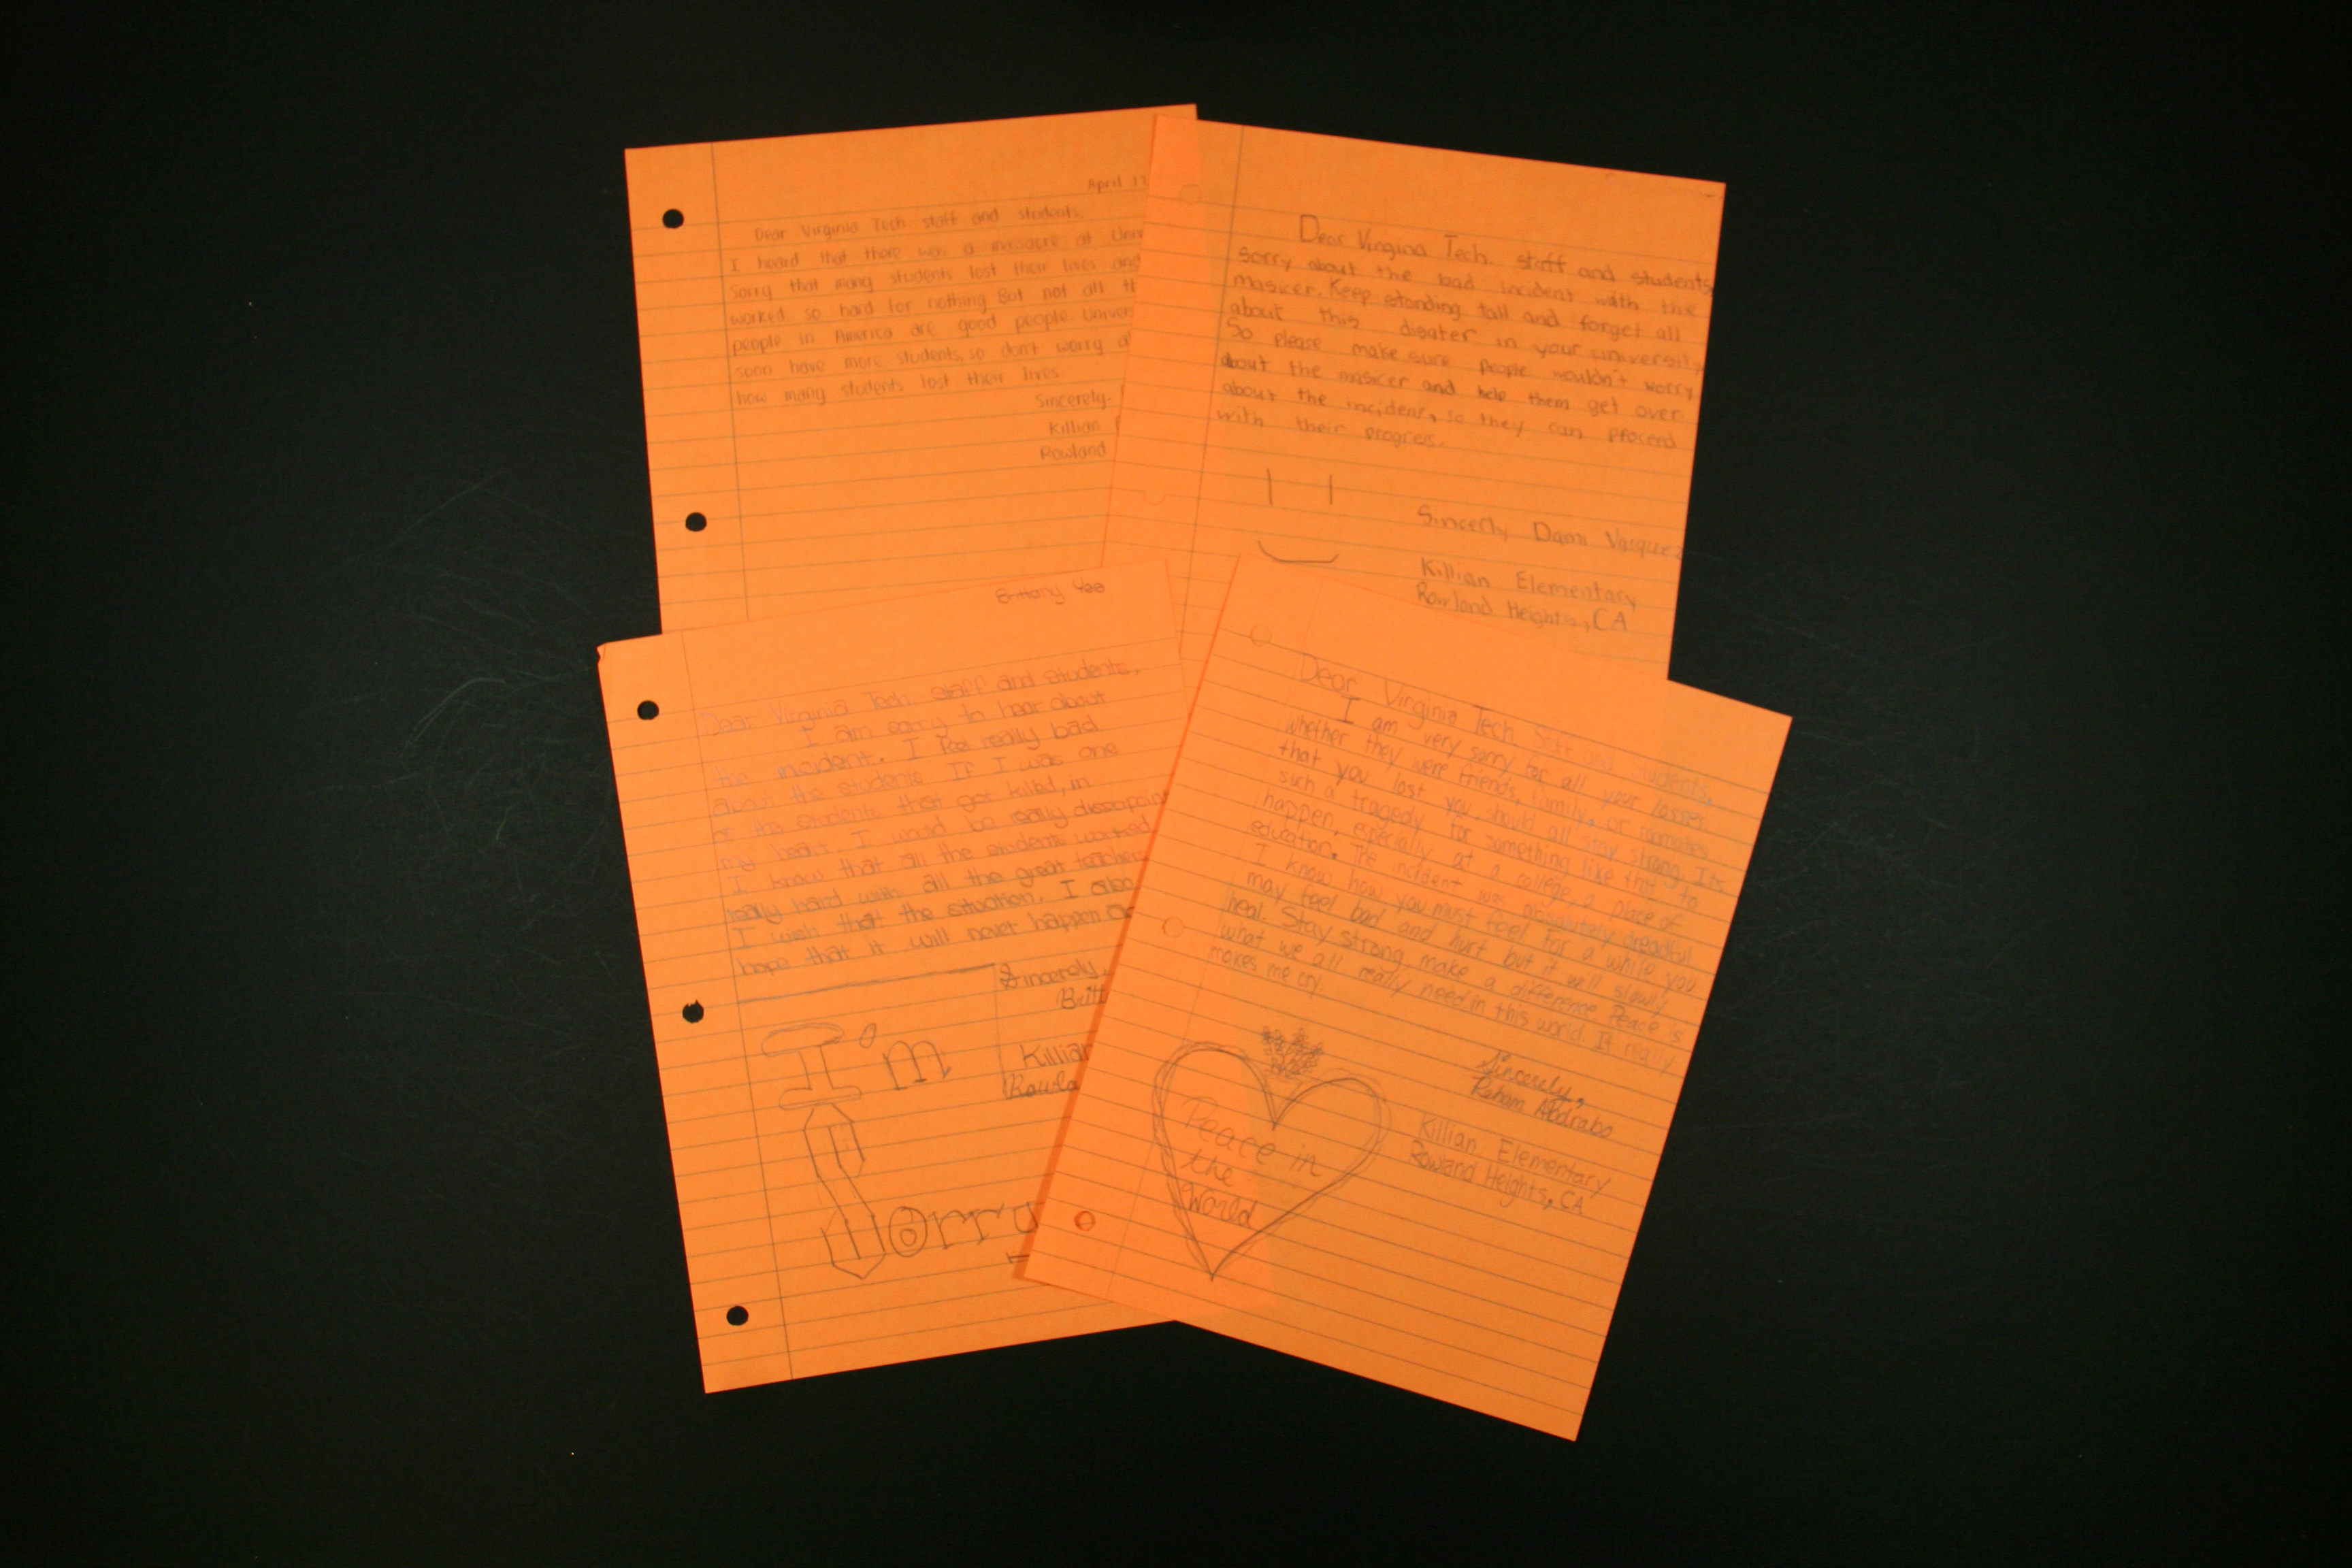 April 17
Dear Virginia Tech staff and students.
I heard that there was a massacre at Univ
sorry that many students lost their lives and
worked so hard for nothing But not all th
people in America are good people. Univer
soon have more students, so don't worry a
how many students lost their lives
Sincerely-
Killian
Rowland
Dear Virgina Tech. staff and students,
Sorry about the bad incident with the
masicer. Keep standing tall and forget all
about this disater in your university.
So please make sure people wouldn't worry
about the masicer and help them get over
about the incident, so they can proceed
with their progress.
Sincerly Dami Vasquez
Killian Elementary
Rowland Heights, CA
Brittany Yee
Dear Virginia Tech. staff and students,
I am sorry to hear about
the incident. I feel really bad
about the students. If I was one
of the students that got killed, in
my heart, I would be really dissapoint
I know that all the students worked
really hard with all the great teachers
I wish that the situation. I also
hope that it will never happen
Sincerely,
Britt
Killian
Rowla
I'm
Sorry
Dear Virginia Tech. Staff and Students,
I am very sorry for all your losses
whether they were friends, family, or
that you lost you should all stay strong. Its
such a tragedy for something like this to
happen, especially at a college, a place of
education. The incident was absolutely dreadful
I know how you must feel for a while you
may feel bad and hurt but it will slowly
heal. Stay strong make a difference Peace is
what we all really need in this world. It really
makes me cry.
Sincerely,
Reham Abdrabo
Killian Elementary
Rowland Heights, CA
Peace in
the
World